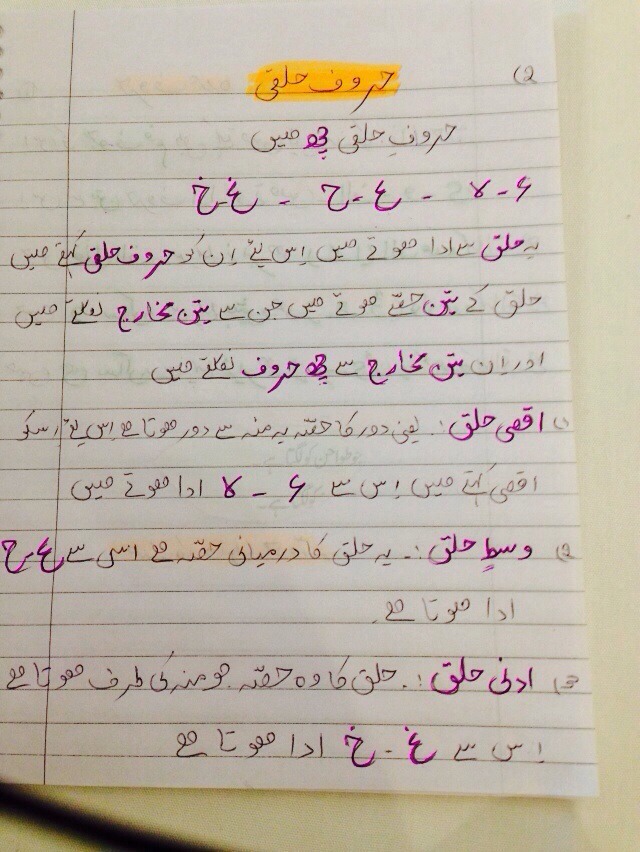 (2
حروف حلقی
حروفِ حلقی چھ ھیں
ء - ہ - ع - ح - غ - خ
یہ حلق سے ادا ھوتے ھیں اِس لئے اِن کو حروف حلق کہتے ھیں
حلق کے تین حصّے ھوتے ھیں جن سے تین مخارج نکلتے ھیں
اور اِن تین مخارج سے چھ حروف نکلتے ھیں
(1 اقصی حلق :۔ یعنی دور کا حصّہ یہ منہ سے دور ھوتا ھے اس لئے اسکو
اقصی کہتے ھیں اِس سے ء - ہ ادا ھوتے ھیں
(2 وسطِ حلق :۔ یہ حلق کا درمیانی حصّہ ھے اسی سے ع - ح
ادا ھوتا ھے۔
(3 ادنٰی حلق :۔ حلق کا وہ حصّہ جو منہ کی طرف ھوتا ھے
اِس سے غ - خ ادا ھوتا ھے